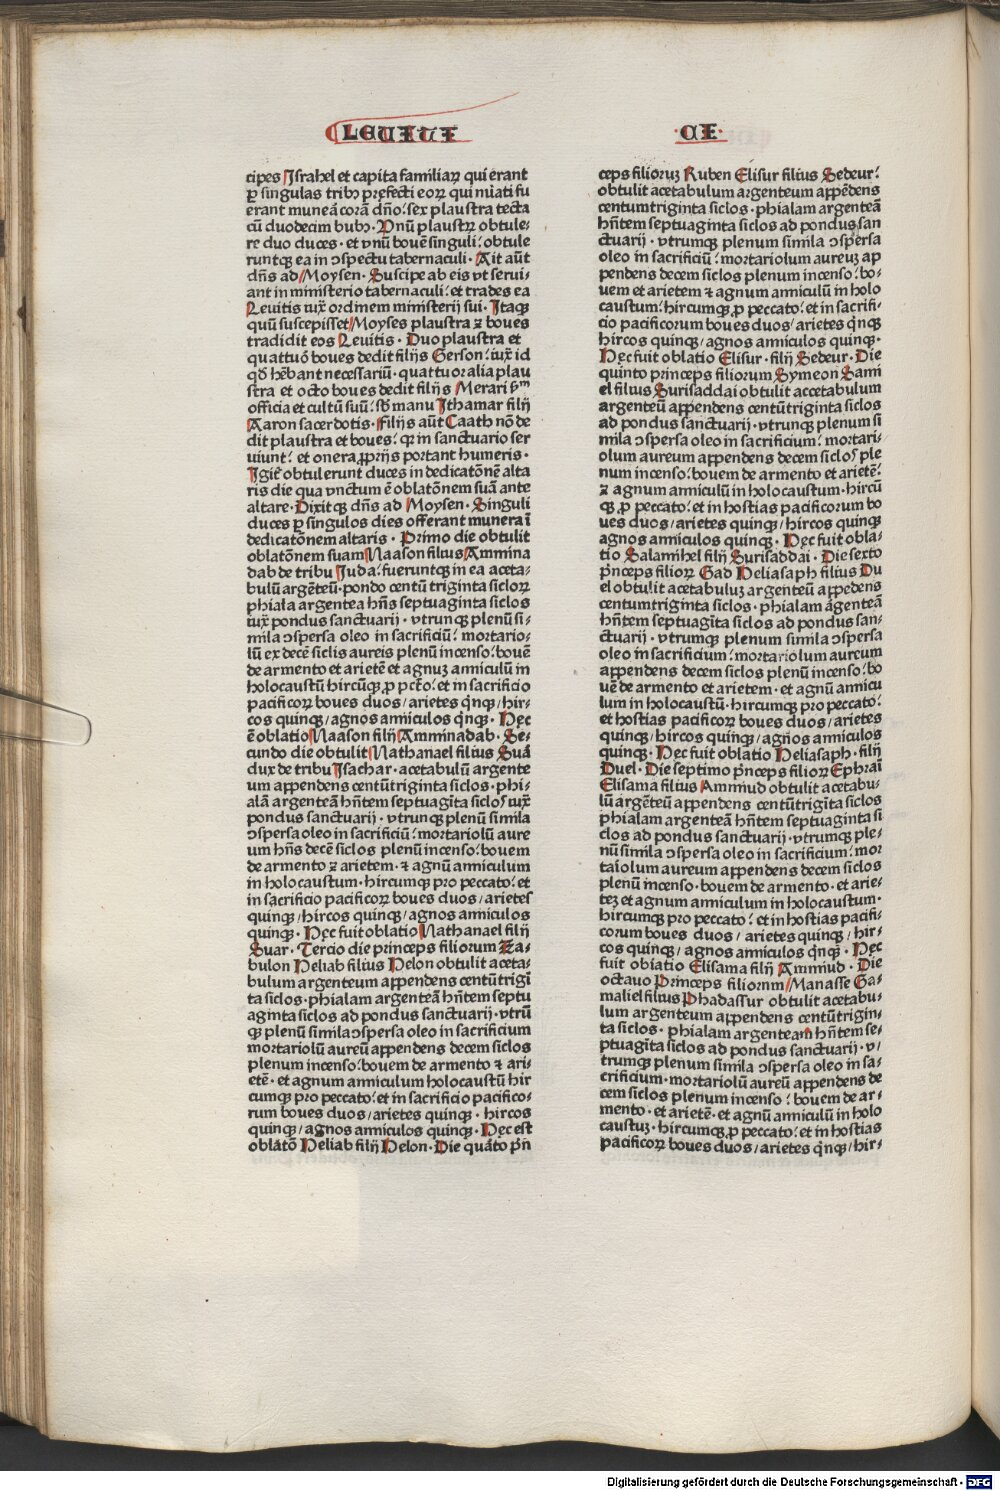 LEUITI
·CI·
cipes Israhel et capita familiaꝝ qui erant
ꝑ singulas tribꝰ pręfecti eoꝝ qui nūati fu
erant muneā corā dño: sex plaustra tecta
cū duodecim bubꝰ. Unū plaustꝝ obtule⸗
re duo duces · et vnū bouē singuli: obtule
runtqꝫ ea in ↄspectu tabernaculi · Ait aūt
dñs ad Moysen · Suscipe ab eis vt serui⸗
ant in ministerio tabernaculi: et trades ea
Leuitis iux̄ ordinem ministerij sui · Itaqꝫ
quū suscepisset Moyses plaustra ⁊ boues
tradidit eos Leuitis · Duo plaustra et
quattuō boues dedit filijs Gerson: iux̄ id
qđ hēbant necessariū · quattuor alia plau
stra et octo boues dedit filijs Merari ẜm
officia et cultū suū: sb manu Ithamar filij
Aaron sacerdotis · Filijs aūt Caath nō de
dit plaustra et boues: qꝛ in sanctuario ser
uiunt: et onera ꝓprijs portant humeris ·
Igit̄ obtulerunt duces in dedicatōnē alta
ris die qua vnctum ē oblatōnem suā ante
altare · Dixitqꝫ dñs ad Moysen · Singuli
duces ꝑ singulos dies offerant munera ī
dedicatōnem altaris · Primo die obtulit
oblatōnem suam Naason filius Ammina
dab de tribu Juda: fueruntqꝫ in ea aceta⸗
bulū argēteū · pondo centū triginta sicloꝝ
phiala argentea hñs septuaginta siclos
iux̄ pondus sanctuarij · vtrunqꝫ plenū si⸗
mila ↄspersa oleo in sacrificiū: mortario⸗
lū ex decē siclis aureis plenū incenso: bouē
de armento et arietē et agnuꝫ anniculū in
holocaustū hircūqꝫ ꝓ pctō: et in sacrificio
pacificoꝝ boues duos / arietes q̄nqꝫ / hir⸗
cos quinqꝫ / agnos anniculos q̄nqꝫ · Hęc
ē oblatio Naason filij Amminadab · Se⸗
cundo die obtulit Nathanael filius Suā
dux de tribu Isachar · acetabulū argente
um appendens centūtriginta siclos · phi⸗
alā argenteā hñtem septuagīta siclos iux̄
pondus sanctuarij · vtrunqꝫ plenū simila
ↄspersa oleo in sacrificiū: mortariolū aure
um hñs decē siclos plenū incenso: bouem
de armento ⁊ arietem · ⁊ agnū anniculum
in holocaustum · hircumqꝫ pro peccato: et
in sacrificio pacificoꝝ boues duos / arietes
quinqꝫ / hircos quinqꝫ / agnos anniculos
quinqꝫ · Hęc fuit oblatio Nathanael filij
Suar · Tercio die princeps filiorum Za⸗
bulon Heliab filius Helon obtulit aceta⸗
bulum argenteum appendens centūtrigī
ta siclos · phialam argenteā hñtem septu
aginta siclos ad pondus sanctuarij · vtrū
qꝫ plenū simila ↄspersa oleo in sacrificium
mortariolū aureū appendens decem siclos
plenum incenso: bouem de armento ⁊ ari⸗
etē · et agnum anniculum holocaustū hir
cumqꝫ pro peccato: et in sacrificio pacifico⸗
rum boues duos / arietes quinqꝫ · hircos
quinqꝫ / agnos anniculos quinqꝫ · Hęc est
oblatō Heliab filij Helon · Die quārto p̄n
ceps filioruꝫ Ruben Elisur filius Sedeur:
obtulit acetabulum argenteum appēdens
centumtriginta siclos · phialam argenteā
hñtem septuaginta siclos ad pondus san
ctuarij · vtrumqꝫ plenum simila ↄspersa
oleo in sacrificiū: mortariolum aureuꝫ ap
pendens decem siclos plenum incenso: bo⸗
uem et arietem ⁊ agnum anniculū in holo
caustum: hircumqꝫ ꝓ peccato: et in sacrifi⸗
cio pacificorum boues duos / arietes q̄nqꝫ
hircos quinqꝫ / agnos anniculos quinqꝫ ·
Hęc fuit oblatio Elisur · filij Sedeur · Die
quinto princeps filiorum Symeon Sami
el filius Surisaddai obtulit accetabulum
argenteū appendens centūtriginta siclos
ad pondus sanctuarij · vtrunqꝫ plenum si
mila ↄspersa oleo in sacrificium: mortari⸗
olum aureum appendens decem siclos ple
num incenso: bouem de armento et arietē:
⁊ agnum anniculū in holocaustum · hircū
qꝫ ꝓ peccato: et in hostias pacificorum bo
ues duos / arietes quinqꝫ / hircos quinqꝫ
agnos anniculos quinqꝫ · Hęc fuit obla⸗
tio Salamihel filij Surisaddai · Die sexto
p̄nceps filioꝝ Gad Heliasaph filius Du
el obtulit acetabuluꝫ argenteū appēdens
centumtriginta siclos · phialam āgenteā
hñtem septuagīta siclos ad pondus san⸗
ctuarij · vtrumqꝫ plenum simila ↄspersa
oleo in sacrificium: mortariolum aureum
appendens decem siclos plenū incenso: bo
uē de armento et arietem · et agnū annicu
lum in holocaustū · hircumqꝫ pro peccato:
et hostias pacificoꝝ boues duos / arietes
quinqꝫ / hircos quinqꝫ / agños anniculos
quinqꝫ · Hęc fuit oblatio Heliasaph · filij
Duel · Die septimo p̄nceps filioꝝ Ephraī
Elisama filius Ammiud obtulit acetabu⸗
lū argēteū appendens centūtrigīta siclos
phialam argenteā hñtem septuaginta si
clos ad pondus sanctuarij · vtrumqꝫ ple⸗
nū simila ↄspersa oleo in sacrificium: mor
taīolum aureum appendens decem siclos
plenū incenso · bouem de armento · et arie⸗
teꝫ et agnum anniculum in holocaustum ·
hircumqꝫ pro peccato: et in hostias pacifi⸗
corum boues duos / arietes quinqꝫ / hir⸗
cos quinqꝫ / agnos anniculos q̄nqꝫ · Hęc
fuit obiatio Elisama filij Ammiud · Die
octauo Princeps filiorum Manasse Ga⸗
maliel filius Phadassur obtulit acetabu⸗
lum argenteum appendens centūtrigin⸗
ta siclos · phialam argenteam hñtem se⸗
ptuagīta siclos ad pondus sanctuarij · v/
trumqꝫ plenum simila ↄspersa oleo in sa⸗
crificium · mortariolū aureū appendens de
cem siclos plenum incenso: bouem de ar⸗
mento · et arietē · et agnū anniculū in holo
caustuꝫ · hircumqꝫ ꝓ peccato: et in hostias
pacificoꝝ boues duos / arietes q̄nqꝫ / hir⸗
Digitalisierung gefördert durch die Deutsche Forschungsgemeinschaft - DFG